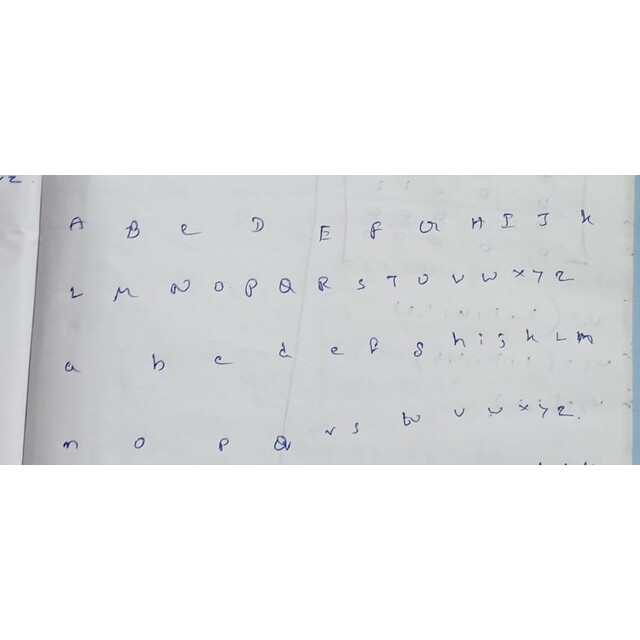 A B C D E F G H I J K
L M N O P Q R S T U V W X Y Z
a b c d e f g h i j k L m
n o p Q r s t u v w x y z.